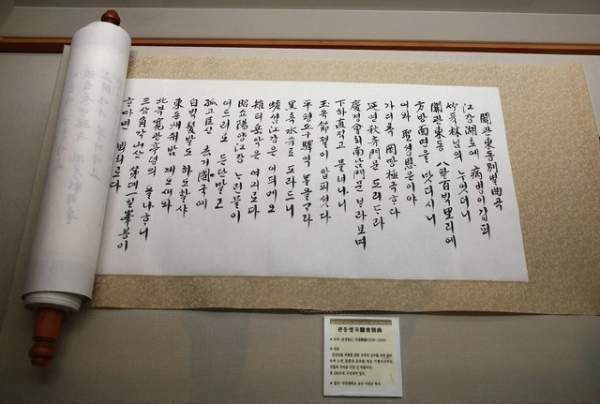 關관東동別별曲곡
江강湖호애 病병이 깁퍼
竹듁林님의 누엇더니
關관東동 八팔百백里리에
方방面면을 맛디시니
어와 聖셩恩은이야
가디록 罔망極극ᄒᆞ다
延연秋츄門문 드리ᄃᆞ라
慶경會회南남門문 ᄇᆞ라보며
下하直직고 믈너나니
玉옥節졀이 압ᄑᆡ셧다
平평丘구驛역 ᄆᆞᆯ을 ᄀᆞ라
黑흑水슈로 도라드니
蟾셤江강은 어듸메오
雉티岳악은 여긔로다
昭쇼陽양江강 ᄂᆞ린 믈이
어드러로 든단말고
孤고臣신 去거國국에
白ᄇᆡᆨ髮발도 하도할샤
東동州쥐밤 계오새와
北북寬관亭뎡의 올나ᄒᆞ니
三삼角각山산 第뎨一일峯봉이
ᄒᆞ마면 뵈리로다
관동별곡關東別曲